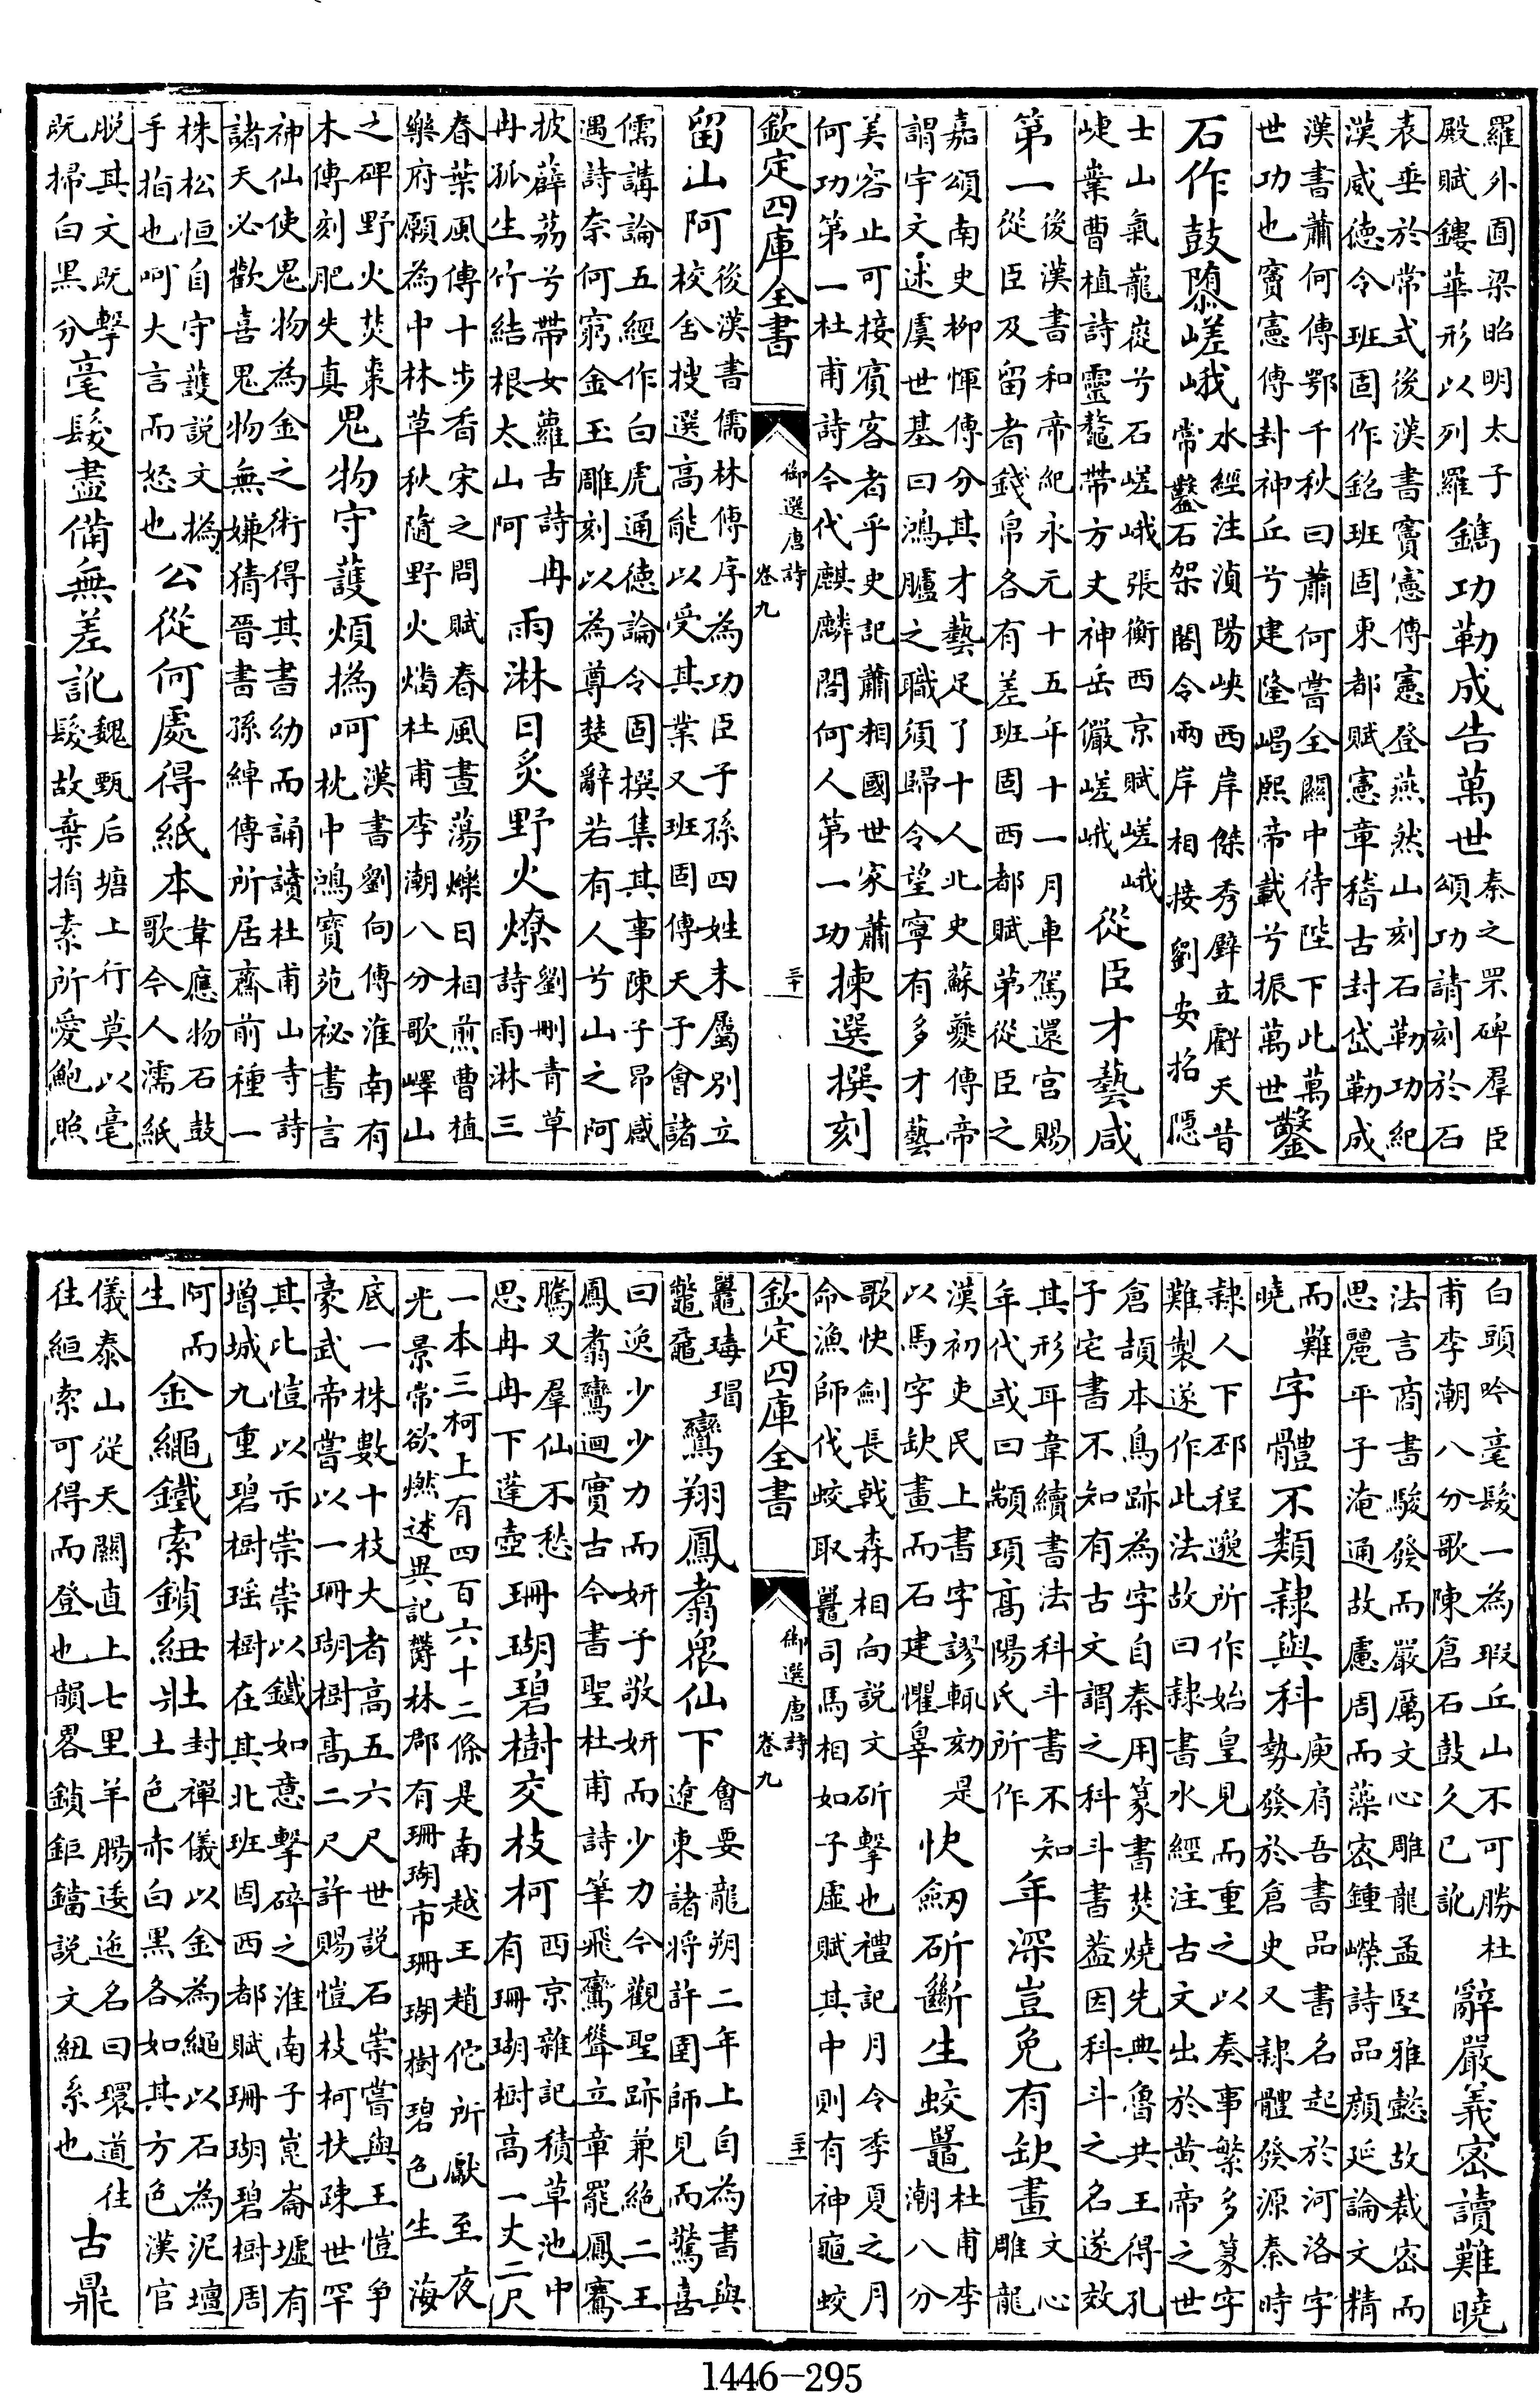 羅外圄梁昭明太子
殿賦鏤華形以列羅
鐫功勒成告萬世
秦之罘碑羣臣
頌功請刻於石
表垂於常式後漢書竇憲傳憲登燕然山刻石勒功紀
漢威德令班固作銘班固東都賦憲章稽古封岱勒成
漢書蕭何傳鄂千秋曰蕭何嘗全關中待陛下此萬
世功也竇憲傳封神丘兮建隆嵑熙帝載兮振萬世
鑿
石作鼓隳嵯峨
水經注湞陽峽西岸傑秀壁立虧天昔
常鑿石架閣令兩岸相接劉安招隱
士山氣巃嵸兮石嵯峨張衡西京賦嵯峨
崨業曹植詩靈鼇帶方丈神岳儼嵯峨
從臣才藝咸
第一
後漢書和帝紀永元十五年十一月車駕還宮賜
從臣及留者錢帛各有差班固西都賦第從臣之
嘉頌南史柳惲傳分其才藝足了十人北史蘇夔傳帝
謂宇文述虞世基曰鴻臚之職須歸令望寧有多才藝
美容止可接賓客者乎史記蕭相國世家蕭
何功第一杜甫詩今代麒麟閣何人第一功
揀選撰刻
欽定四庫全書
御選唐詩
卷九
三十
留山阿
後漢書儒林傳序為功臣子孫四姓末屬別立
校舍搜選高能以受其業又班固傳天子會諸
儒講論五經作白虎通德論令固撰集其事陳子昂感
遇詩奈何窮金玉雕刻以為尊楚辭若有人兮山之阿
披薜荔兮帶女蘿古詩冉
冉孤生竹結根太山阿
雨淋日炙野火燎
劉刪青草
詩雨淋三
春葉風傳十步香宋之問賦春風晝蕩爍日相煎曹植
樂府願為中林草秋隨野火燔杜甫李潮八分歌嶧山
之碑野火焚棗
木傳刻肥失真
鬼物守護煩撝呵
漢書劉向傳淮南有
枕中鴻寶苑祕書言
神仙使鬼物為金之術得其書幼而誦讀杜甫山寺詩
諸天必歡喜鬼物無嫌猜晉書孫綽傳所居齋前種一
株松恒自守護説文撝
手指也呵大言而怒也
公從何處得紙本
韋應物石鼓
歌今人濡紙
脫其文既擊
既掃白黑分
毫髮盡備無差訛
魏甄后塘上行莫以毫
髮故棄捐素所愛鮑照
白頭吟毫髮一為瑕丘山不可勝杜
甫李潮八分歌陳倉石鼓久已訛
辭嚴義密讀難曉
法言商書駿發而嚴厲文心雕龍孟堅雅懿故裁密而
思麗平子淹通故慮周而藻密鍾嶸詩品顔延論文精
而難
曉
字體不類隸與科
庾肩吾書品書名起於河洛字
勢發於倉史又隸體發源秦時
隸人下邳程邈所作始皇見而重之以奏事繁多篆字
難製遂作此法故曰隸書水經注古文出於黄帝之世
倉頡本鳥跡為字自秦用篆書焚燒先典魯共王得孔
子宅書不知有古文謂之科斗書葢因科斗之名遂效
其形耳韋續書法科斗書不知
年代或曰顓頊高陽氏所作
年深豈免有缺畫
文心
雕龍
漢初吏民上書字謬輒劾是
以馬字缺畫而石建懼辠
快劒斫斷生蛟鼉
杜甫李
潮八分
歌快劍長戟森相向説文斫擊也禮記月令季夏之月
命漁師伐蛟取鼉司馬相如子虛賦其中則有神龜蛟
欽定四庫全書
御選唐詩
卷九
三十一
鼉瑇瑁
鼈黿
鸞翔鳳翥衆仙下
會要龍朔二年上自為書與
遼東諸將許圉師見而驚喜
曰逸少少力而妍子敬妍而少力今觀聖跡兼絶二王
鳳翥鸞迴實古今書聖杜甫詩筆飛鸞聳立章罷鳳騫
騰又羣仙不愁
思冉冉下蓬壺
珊瑚碧樹交枝柯
西京雜記積草池中
有珊瑚樹高一丈二尺
一本三柯上有四百六十二條是南越王趙佗所獻至夜
光景常欲燃述異記鬱林郡有珊瑚市珊瑚樹碧色生海
底一株數十枝大者高五六尺世説石崇嘗與王愷爭
豪武帝嘗以一珊瑚樹高二尺許賜愷枝柯扶疎世罕
其比愷以示崇崇以鐵如意擊碎之淮南子崑崙墟有
增城九重碧樹瑶樹在其北班固西都賦珊瑚碧樹周
阿而
生
金繩鐵索鎖紐壯
封禪儀以金為繩以石為泥壇
土色赤白黑各如其方色漢官
儀泰山從天關直上七里羊腸逶迤名曰環道往
往絙索可得而登也韻畧鎖鉅鐺説文紐系也
古鼎
1446-295